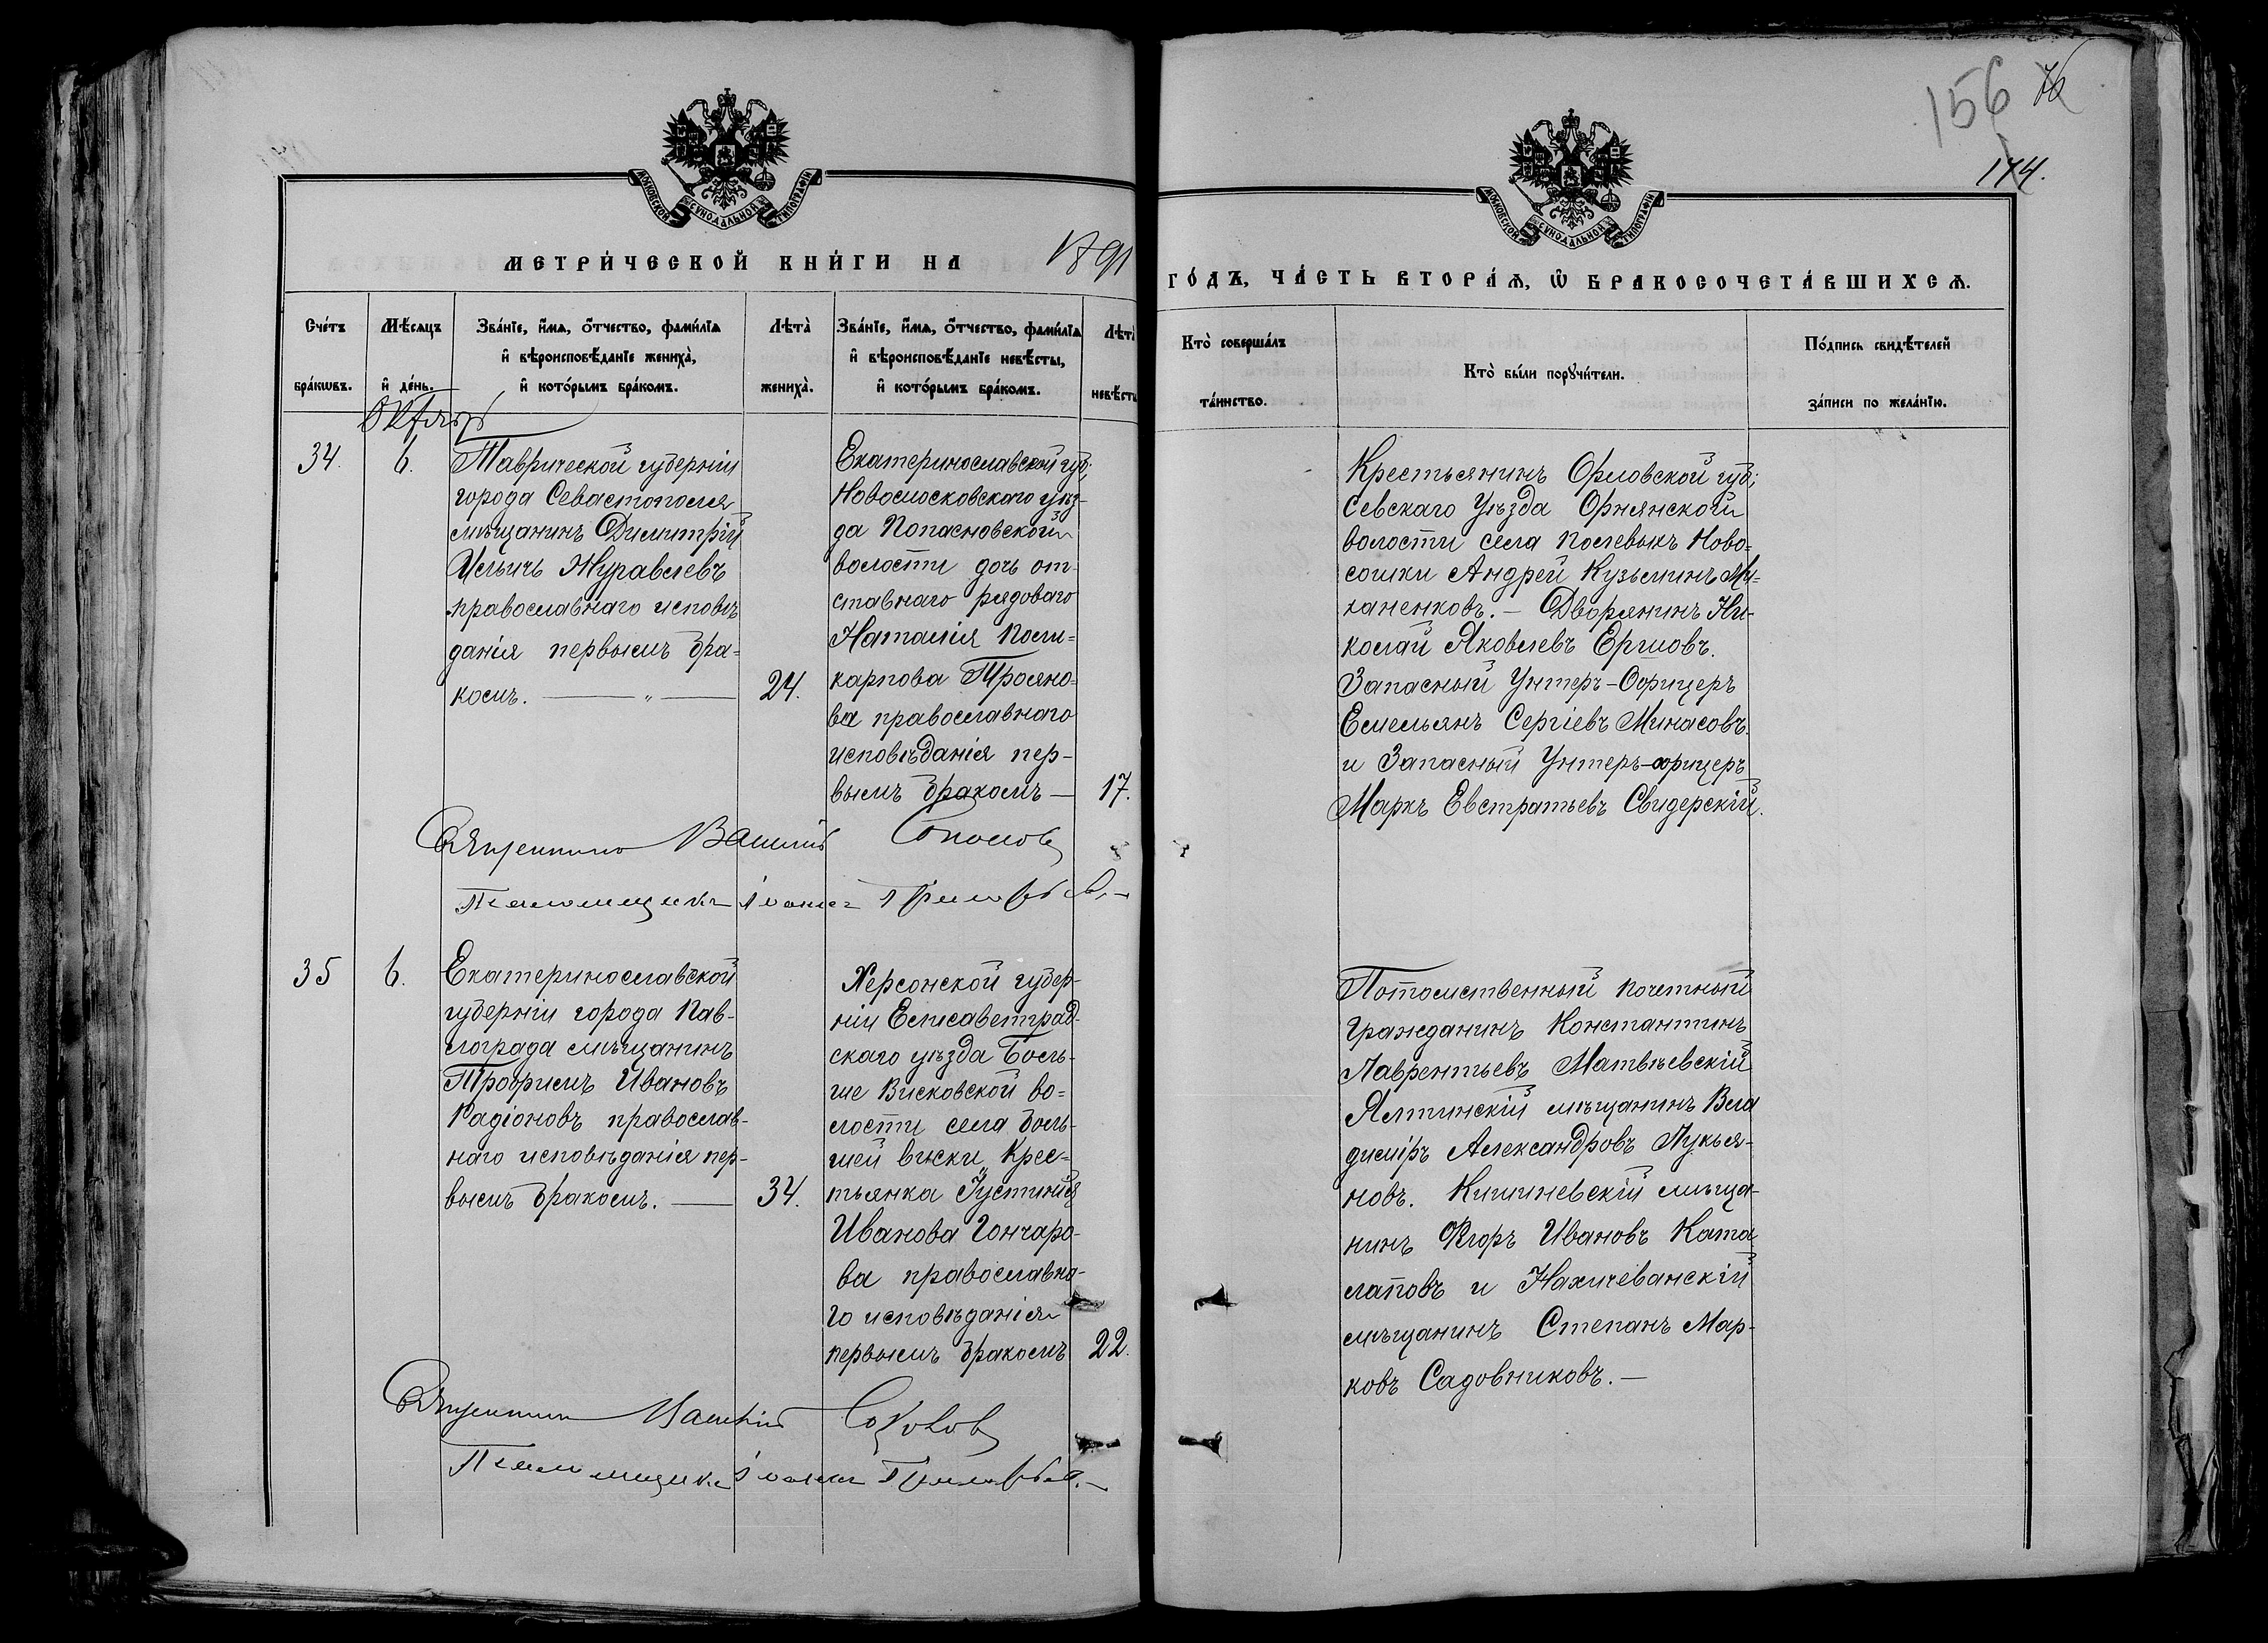 156 76
174.
МОСКОВСКОЙ СУНОДАЛЬНОЙ ТИПОГРАФІИ
МОСКОВСКОЙ СУНОДАЛЬНОЙ ТИПОГРАФІИ
МЕТРИ́ЧЕСКОЙ КНИ́ГИ НА 1891
ГО́ДЪ, ЧА́СТЬ ВТОРА́Ѧ, Ѡ҆ БРАКОСОЧЕТА́ВШИХСѦ.
Сче́тъ
бра́кѡвъ.
Мѣ́сѧцъ
и҆ де́нь.
Зва́нїе, и҆́мѧ, ѻ҆́тчество, фами́лїѧ
и҆ вѣроисповѣ́данїе жениха̀,
и҆ кото́рымъ бра́комъ.
Лѣта̀
жениха̀.
Зва́нїе, и҆́мѧ, ѻ҆́тчество, фами́лїѧ
и҆ вѣроисповѣ́данїе невѣ́сты,
и҆ кото́рымъ бра́комъ.
Лѣта̀
невѣ́сты
Кто̀ соверша́лъ
та́инство.
Кто̀ бы́ли порꙋчи́тели.
По́дпись свидѣ́телей
за́писи по жела́нїю.
Октябрь
34.
6.
Таврической губерніи
города Севастополя
мѣщанинъ Димитрій
Ильичъ Журавлевъ
православнаго исповѣ
данія первымъ бра=
комъ. — „ —
24.
Екатеринославской губ;
Новомосковскаго уѣз-
да Попасновской
волости дочь от-
ставнаго рядоваго
Наталія Поли=
карпова Трояно=
ва православнаго
исповѣданія пер-
вымъ бракомъ —
17.
Крестьянинъ Орловской губ;
Севскаго Уѣзда Орлянской
волости села Послевыхъ Ново=
сошки Андрей Кузьминъ Ми-
ханенковъ. — Дворянинъ Ни-
колай Яковлевъ Ершовъ.
Запасный Унтеръ-Офицеръ
Емельянъ Сергіевъ Минасовъ.
и Запасный Унтеръ-офицеръ
Маркъ Евстратьевъ Свидерскій.
Священникъ Василій Соколов
Псаломщикъ Іоаннъ
35
6.
Екатеринославской
губерніи города Пав-
лограда мѣщанинъ
Трофимъ Ивановъ
Радіоновъ православ-
наго исповѣданія пер-
вымъ бракомъ. —
34.
Херсонской губер-
ніи Елисаветград-
скаго уѣзда Боль-
ше Висковской во=
лости села Боль-
шей виски Крес=
тьянка Іустинія
Иванова Гончаро-
ва православна-
го исповѣданія
первымъ бракомъ
22.
Потомственный Почетный
Гражданинъ Константинъ
Лаврентьевъ Матвѣевскій
Ялтинскій мѣщанинъ Вла
диміръ Александровъ Лукья-
новъ. Кишиневскій мѣща-
нинъ Егоръ Ивановъ Ката
лаповъ и Нахичеванскій
мѣщанинъ Степанъ Мар-
ковъ Садовниковъ. —
Священникъ Василій Соколов
Псаломщикъ Іоаннъ